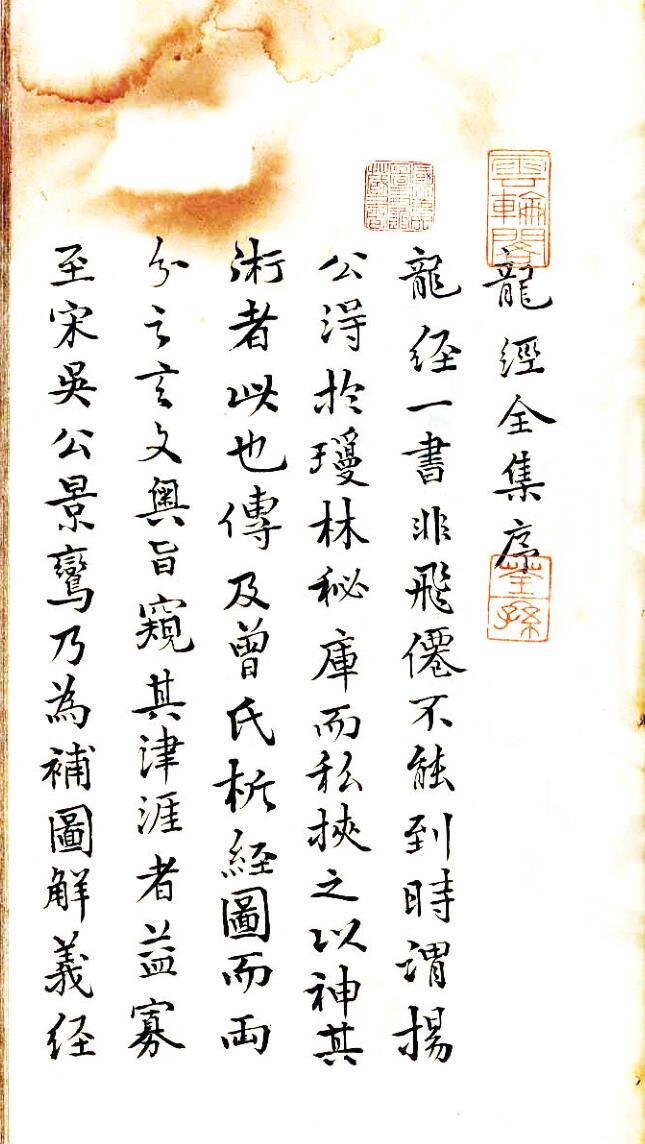 雲輪閣
龍經全集序
荃孫
龍经一書非飛僊不能到時謂揚
公淂扵瓊林秘庫而私挾之以神其
術者此也傳及曾氏析経圖而両
分之玄文奧旨窺其津涯者益寡
至宋吳公景鸞乃為補圖解義经